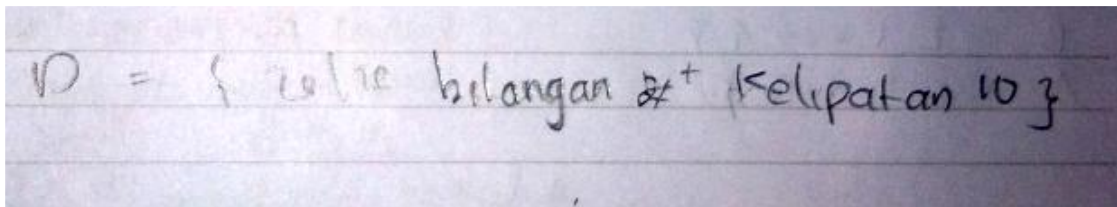 D = { bilangan Z⁺ Kelipatan 10 }